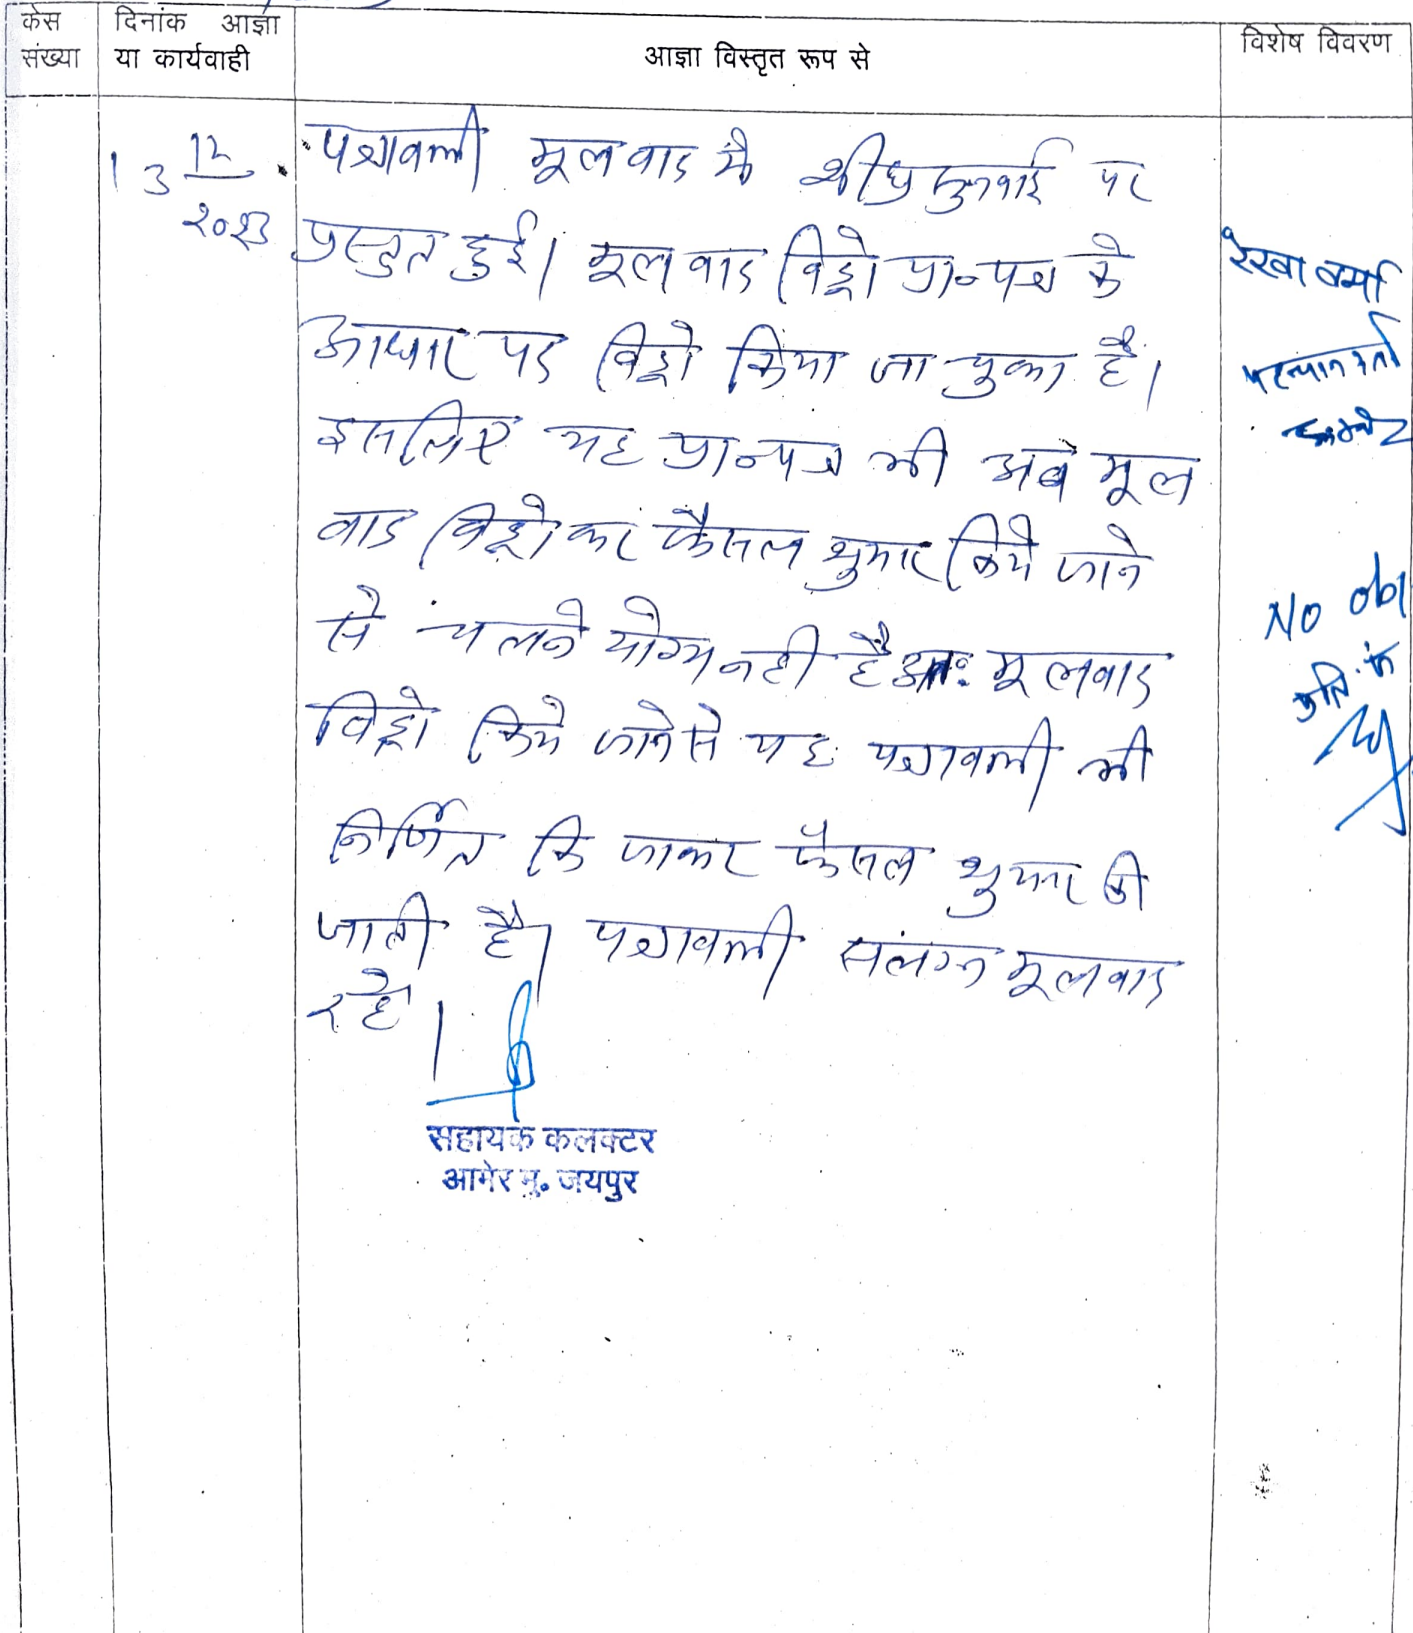 केस संख्या
दिनांक आज्ञा या कार्यवाही
आज्ञा विस्तृत रूप से
विशेष विवरण
13 12/2023
पत्रावली मूलवाद में शीघ्र सुनवाई पर
प्रस्तुत हुई। मूल वाद विड्रो प्रा०पत्र के
आधार पर विड्रो किया जा चुका है।
इसलिए यह प्रा०पत्र भी अब मूल
वाद विड्रो कर फैसल शुमार किये जाने
से चलने योग्य नही है अतः मूलवाद
विड्रो किये जाने से यह पत्रावली भी
निर्णित कि जाकर फैसल शुमार की
जाती है। पत्रावली सलंग्न मूलवाद
रहे।
सहायक कलक्टर
आमेर मु. जयपुर
रेखा वर्मा
No obj